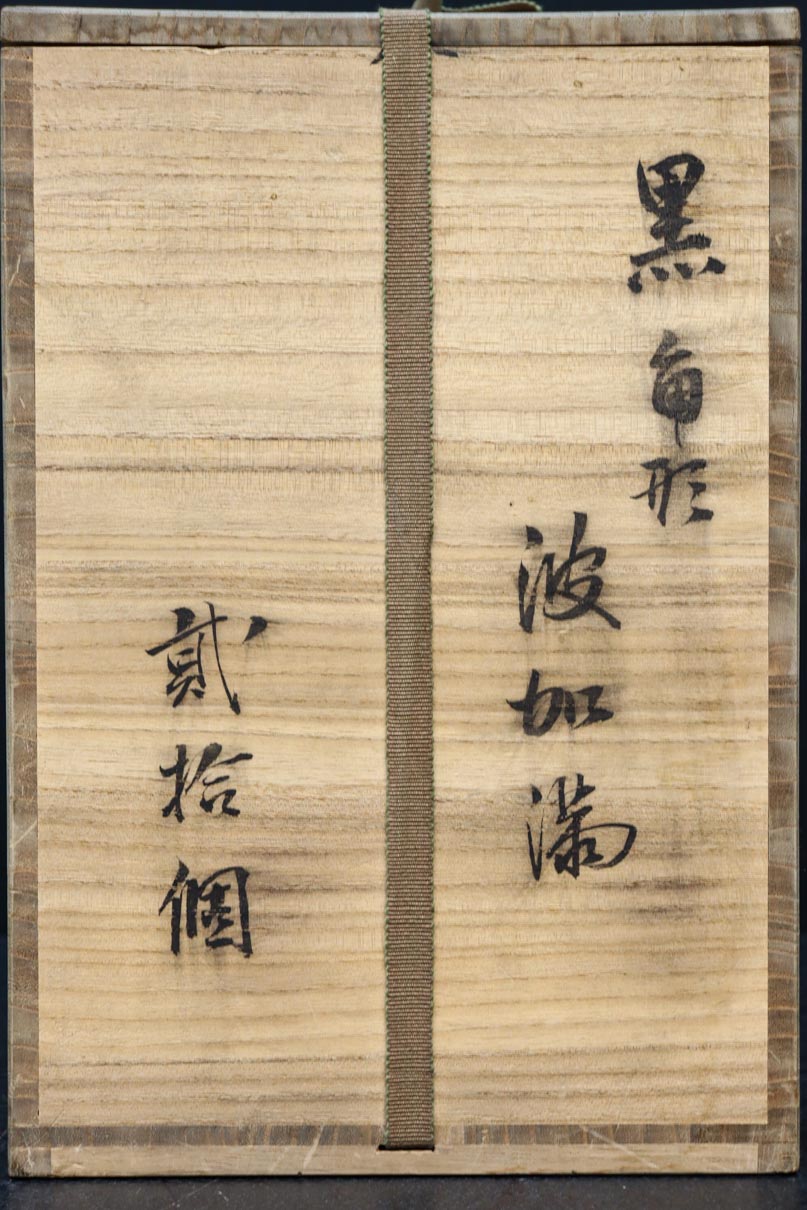 黒角形
波加満
貳拾個